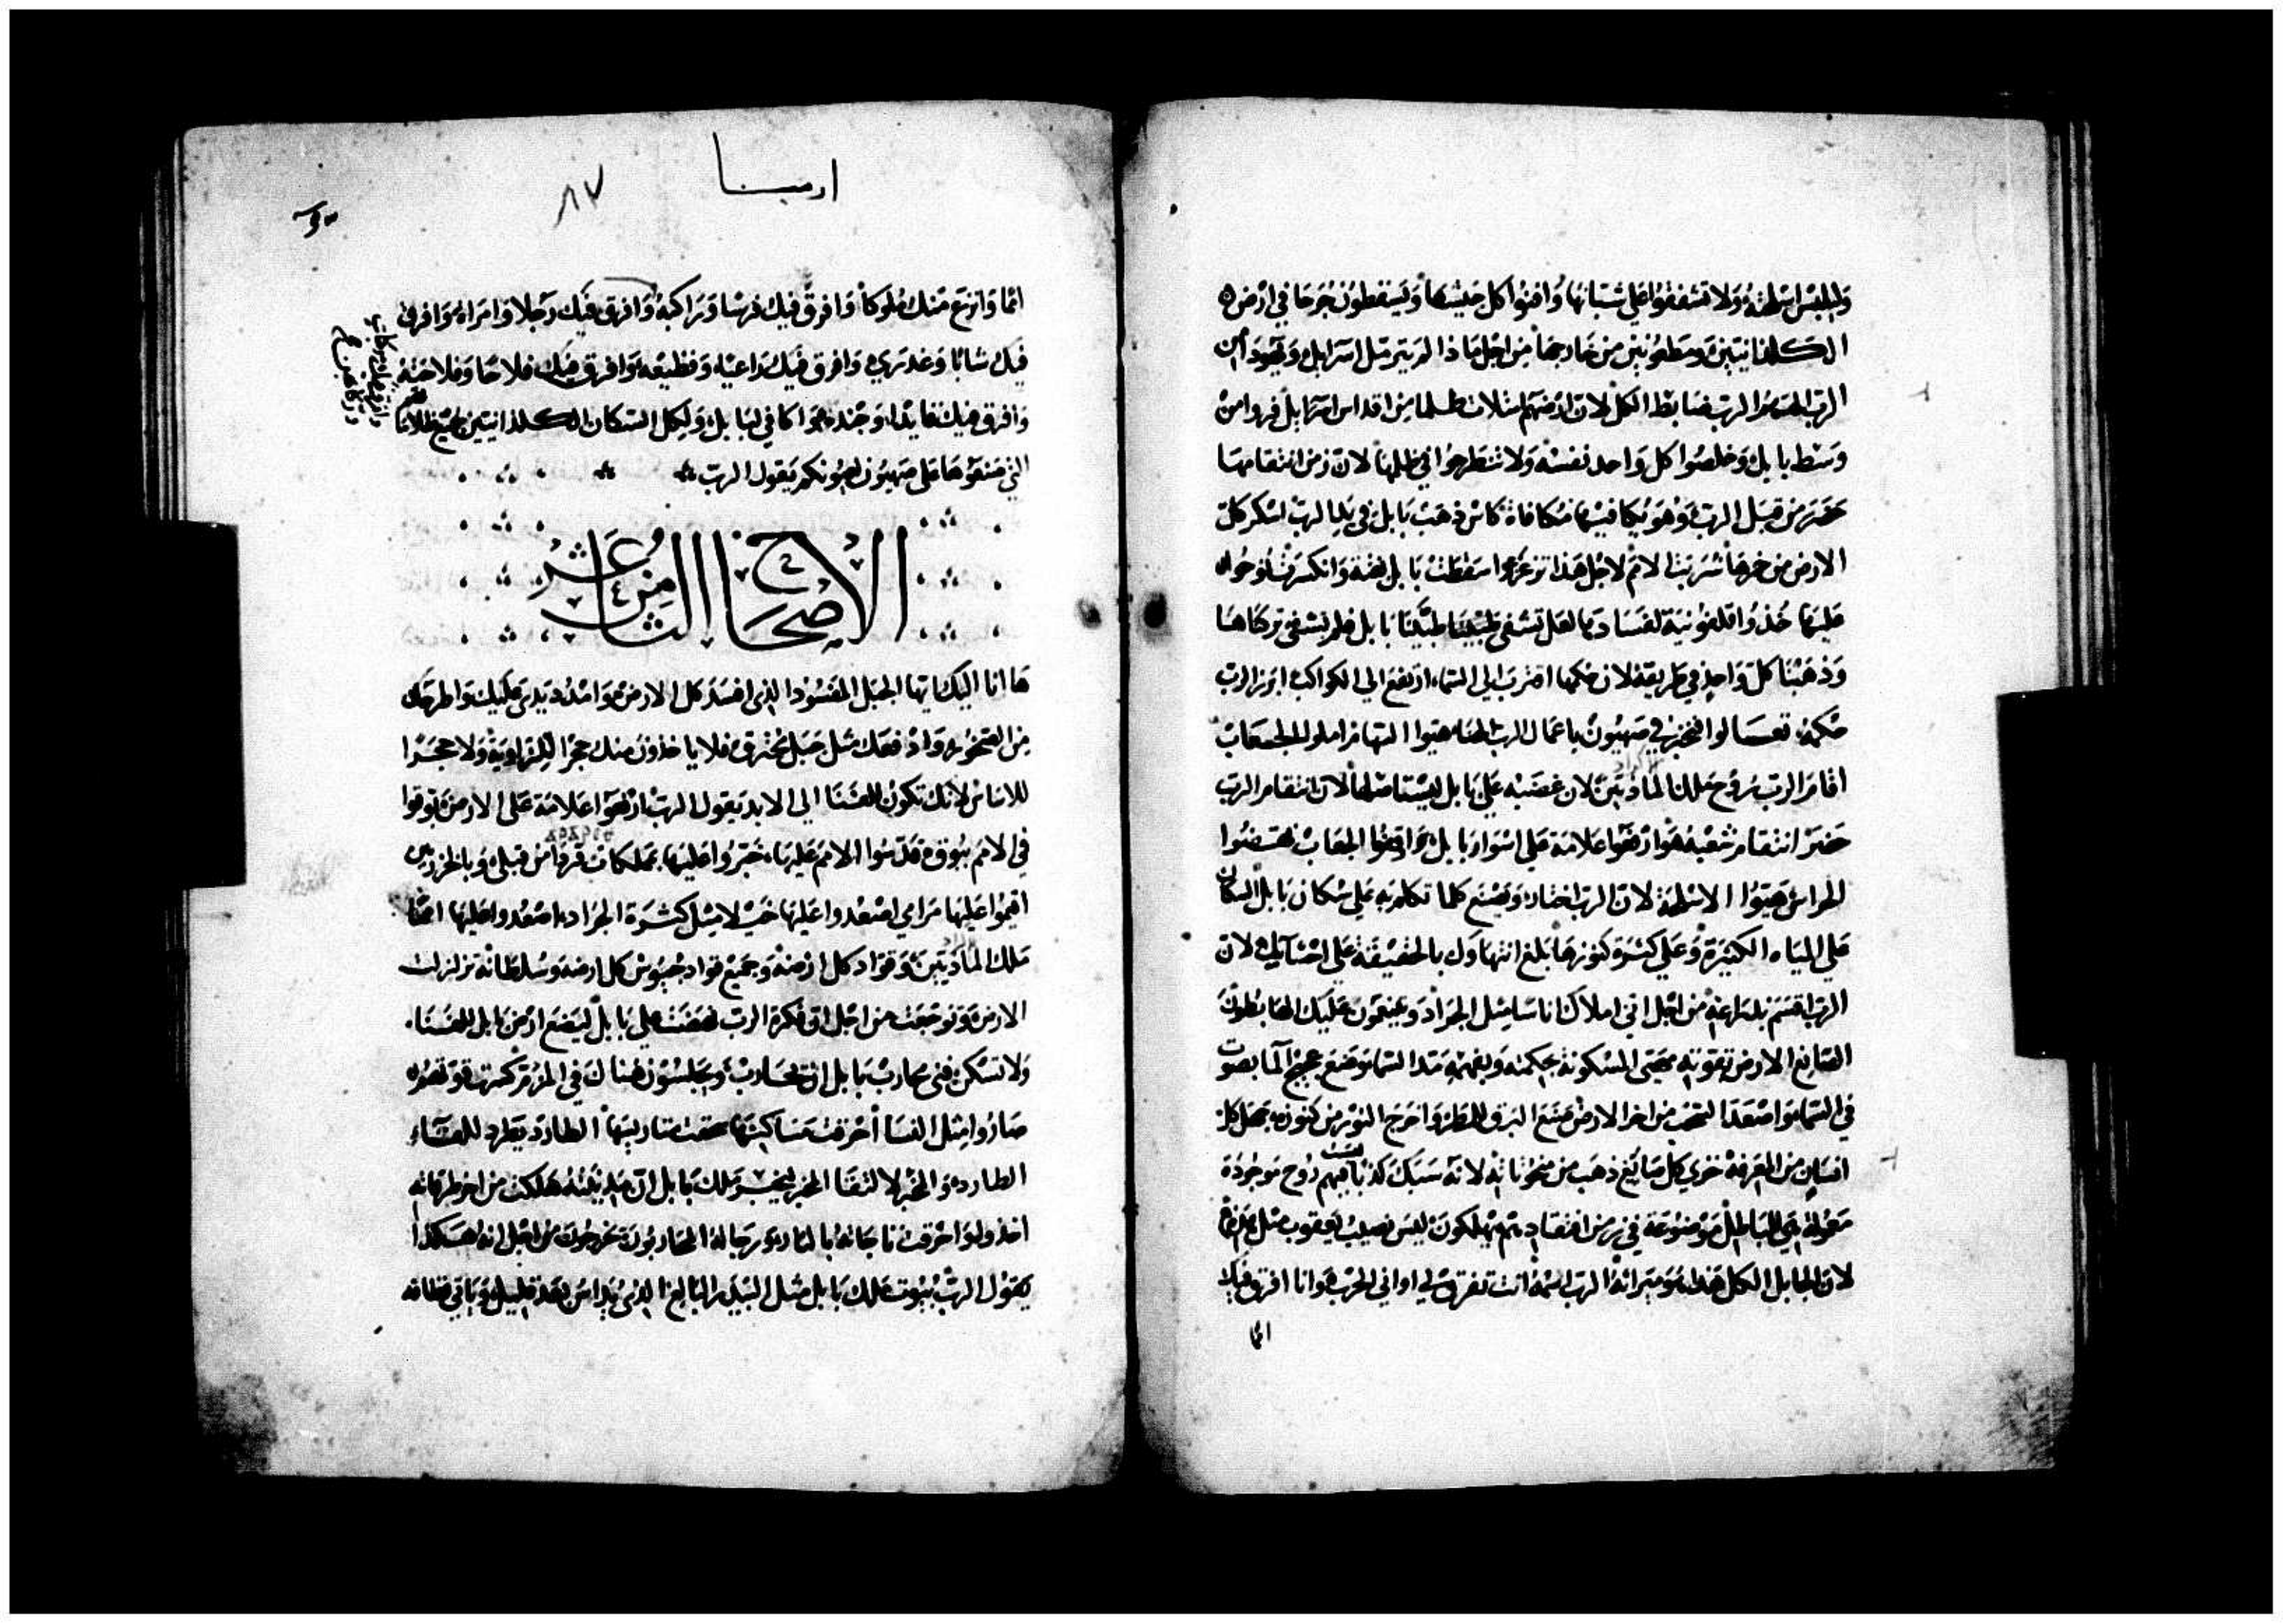 والملبس اسلحته ولا تشفقوا على شبانها وافنوا كل جيشها ويسقطون جرحا في ارض
الكلدانيين ومطعونين من خارجها من اجل ماذا لم يترمل اسرايل ويهودا من
الرب الههم الرب ضابط الكل لان ارضهم امتلات ظلما من اقداس اسرايل فروا من
وسط بابل وخلصوا كل واحد نفسه ولا تنطرحوا في ظلمها لان زمن انتقامها
حضر من قبل الرب وهو يكافيها مكافاة كاس ذهب بابل في يد الرب اسكر كل
الارض من خمرها شربت الامم لاجل هذا تزعزعوا سقطت بابل بغتة وانكسرت نوحوا
عليها خذوا قلفونية لفسادها لعل تشفى طببنا بابل فلم تشفى تركناها
وذهبنا كل واحد في طريقه لان حكمها اقترب الى السماء ارتفع الى الكواكب ابرز الرب
حكمه تعالوا لنخبر في صهيون باعمال الرب الهنا هيوا السهام املوا الجعاب
اقام الرب روح ملك الماديين لان غضبه على بابل ليستاصلها لان انتقام الرب
حضر انتقام شعبه هو ارفعوا علامة على اسوار بابل واقيموا الجعاب انهضوا
الحراس هيوا الاسلحة لان الرب اختار ويصنع كلما تكلم به على سكان بابل السكان
على المياه الكثيرة وعلى كثرة كنوزها بلغ انتهاوك بالحقيقة على احشايك لان
الرب اقسم بذراعه من اجل اني املاك اناسا مثل الجراد ويصيحون عليك الهابطون
الصانع الارض بقوته مصحى المسكونة بحكمته وبفهمه مد السما وضع عجيج الما بصوت
في السما واصعد السحب من اخر الارض صنع البرق للمطر واخرج النور من كنوزه جهل كل
انسان من المعرفة خزي كل صايغ ذهب من منحوتاته لانه سبك كذبا ليست فيهم روح موجودة
معمولة هي للباطل موضوعة في زمن افتقادهم يهلكون ليس نصيب يعقوب مثل هذه
لان الجابل الكل هذا هو ميراثه الرب اسمه انت تفرق لي اواني الحرب وانا افرق فيك
امما
ارميا
٨٧
امما وانزع منك ملوكا وافرق فيك فرسا وراكبه وافرق فيك رجلا وامراه وافرق
فيك شابا وعذرى وافرق فيك راعيا وقطيعه وافرق فيك فلاحا وفلاحته
وافرق فيك قايدا وجنده واكافي لبابل ولكل السكان الكلدانيين جميع ظلاماتهم
التي صنعوها على صهيون لعيونكم يقول الرب
الاصحاح الثامن عشر
ها انا اليك ايها الجبل المفسود الذي افسد كل الارض وامد يدي عليك واطرحك
من الصخور وادفعك مثل جبل محترق فلا ياخذون منك حجرا للزاوية ولا حجرا
للاساس لانك تكون للفنا الى الابد يقول الرب ارفعوا علامة على الارض بوقوا
في الامم ببوق قدسوا الامم عليها خبروا عليها بمملكات
اقيموا عليها مرامي اصعدوا عليها خيلا مثل كثرة الجراد اصعدوا عليها امما
ملك الماديين وقواد كل ارضه وجميع قواد جيوش كل ارضه وسلطانه تزلزلت
الارض وتوجعت من اجل ان فكرة الرب نهضت على بابل ليضع ارض بابل للفنا
ولا تسكن فنى محارب بابل ان يحارب ويجلسون هناك في المزمر كسرت قوتهم
صاروا مثل النسا احرقت مساكنها سحقت متاريسها الطارد يطرد للقاء
الطارد والمخبر لالتقا المخبر ليخبر ملك بابل ان مدينته هلكت من اخر طرقاته
اخذوا واحرقت ناجاته بالنار ورجاله المحاربون يخرجون من اجل انه هكذا
يقول الرب بيوت ملك بابل مثل البيدر البالغ الذي يداس بعد قليل وياتي قطافه